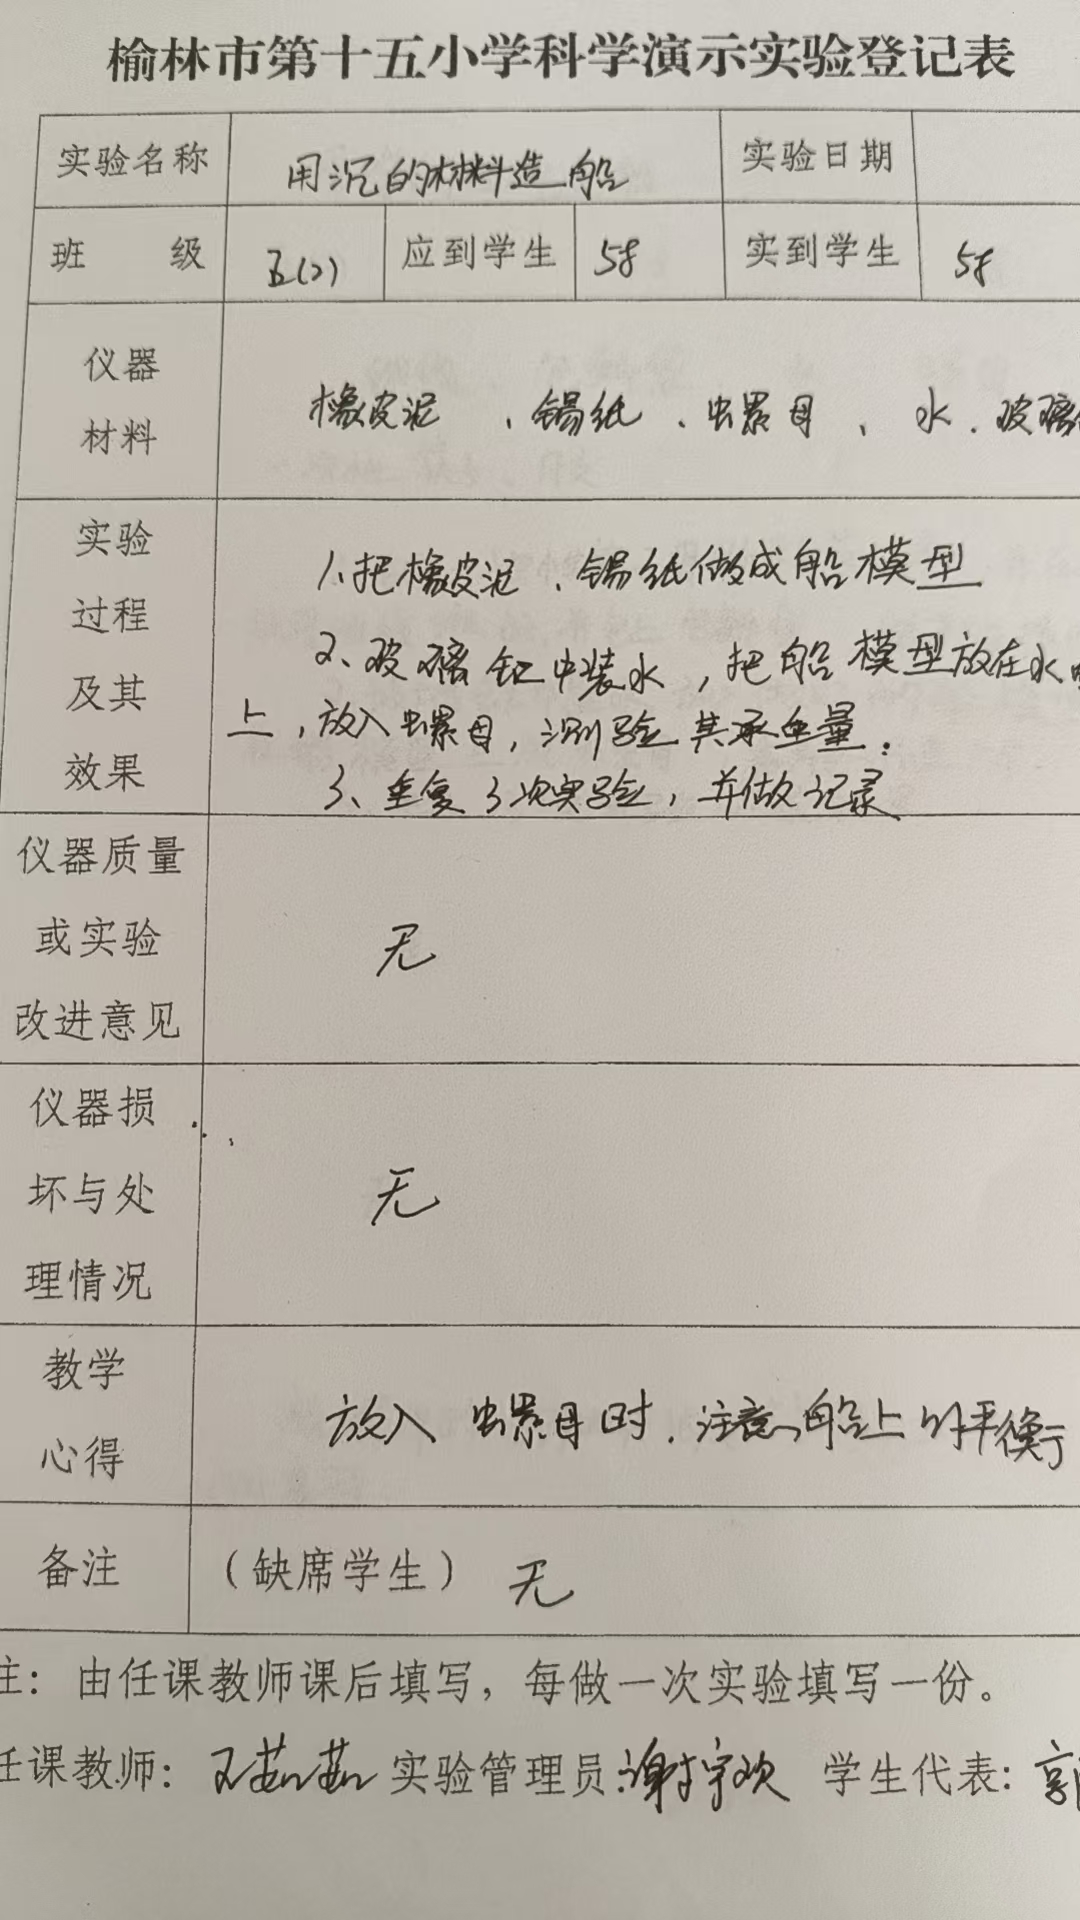 榆林市第十五小学科学演示实验登记表
实验名称 用沉的材料造船 实验日期
班 级 五(2) 应到学生 58 实到学生 58
仪器
材料
橡皮泥、锡纸、螺母、水、玻璃
实验
过程
及其
效果
1、把橡皮泥、锡纸做成船模型
2、玻璃缸中装水，把船模型放在水
上，放入螺母，测验其承重量.
3、重复3次实验，并做记录
仪器质量
或实验
改进意见
无
仪器损
坏与处
理情况
无
教学
心得
放入螺母时.注意船上的平衡
备注 （缺席学生） 无
注：由任课教师课后填写，每做一次实验填写一份。
任课教师：王茹茹 实验管理员:谢宇欢 学生代表:郭